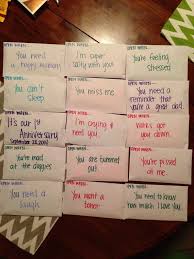 OPEN WHEN...
You need
a happy moment
OPEN WHEN...
I'm super
salty with you!
OPEN WHEN...
You're feeling
stressed
OPEN WHEN...
You can't
sleep
OPEN WHEN...
You miss me
OPEN WHEN...
You need a
reminder that
you're a great dad
OPEN WHEN...
It's our 1st
Anniversary
OPEN WHEN...
I'm pacing &
need you.
OPEN WHEN...
Works got
you down.
OPEN WHEN...
You're mad
at the doggies
OPEN WHEN...
You are bummed
out
OPEN WHEN...
You're pissed
at me
OPEN WHEN...
You need a
laugh
OPEN WHEN...
You want a
OPEN WHEN...
You need to know
how much I love You